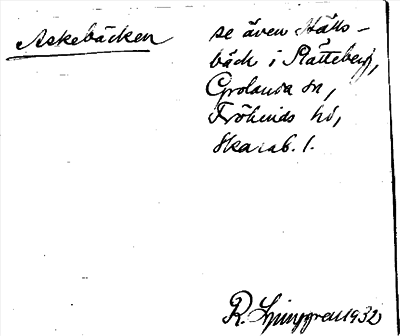 Askebäcken
se även Hålls-
bäck i Slätteberg,
Grolanda sn,
Frökinds hd,
Skarab. l.
R. Ljunggren 1932